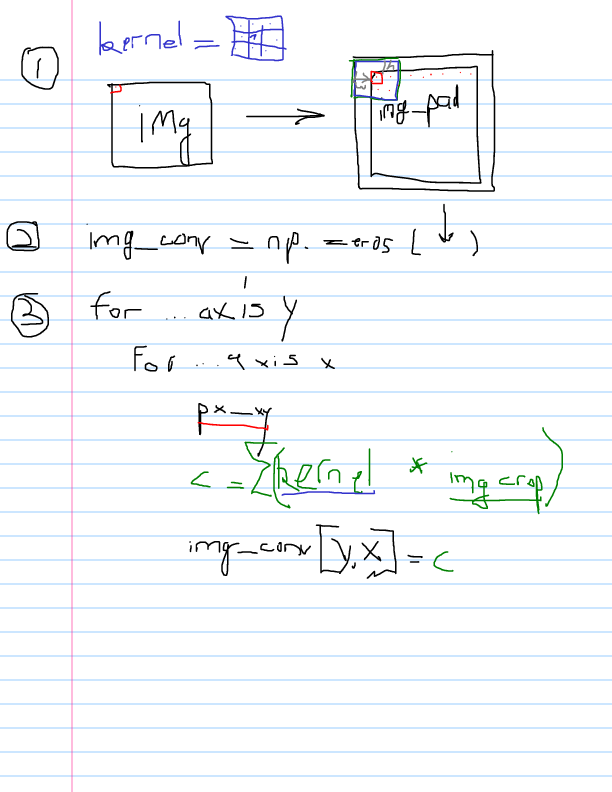 kernel =
1
img
img_pad
2 img_conv = np.zeros( ↓ )
3 for ... axis y
For ... axis x
px_xy
c = Σ(kernel * img crop)
img_conv[y,x] = c